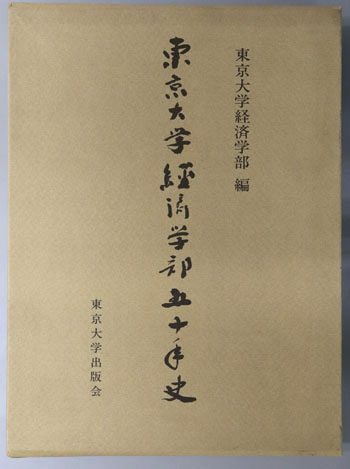 東京大学経済学部 編
東京大学經済学部五十年史
東京大学出版会